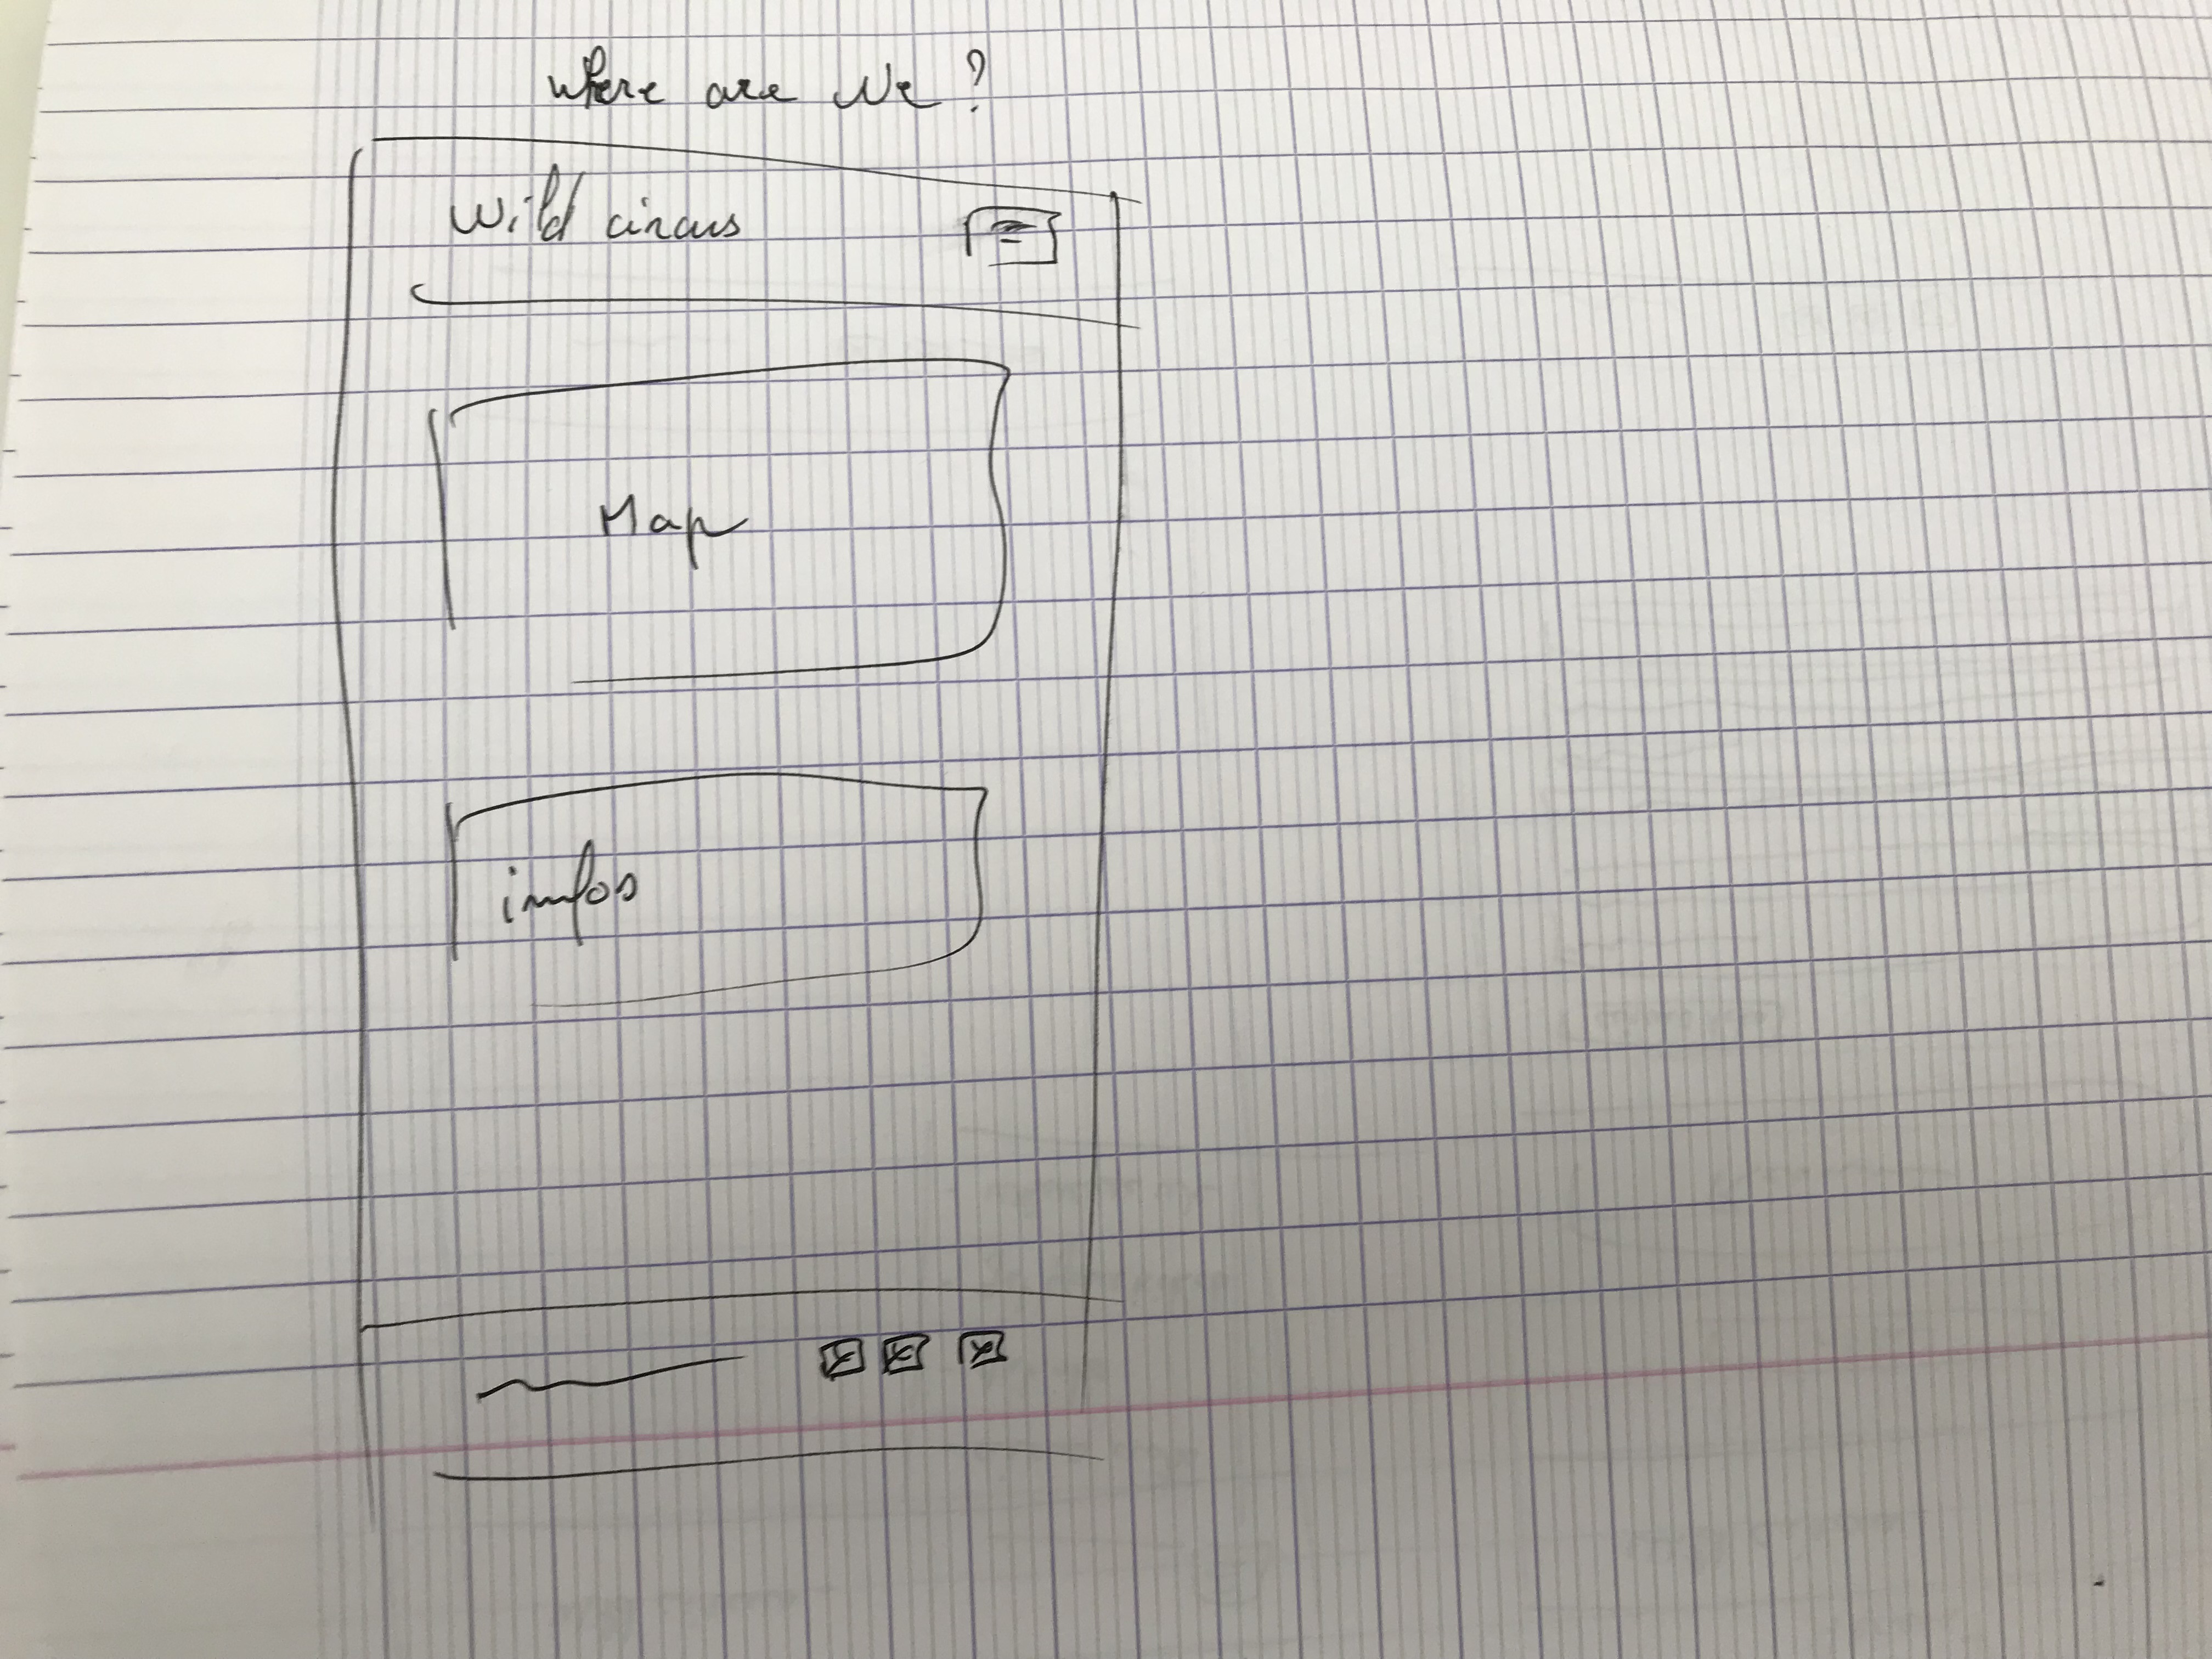 where are we ?
Wild circus
Map
infos